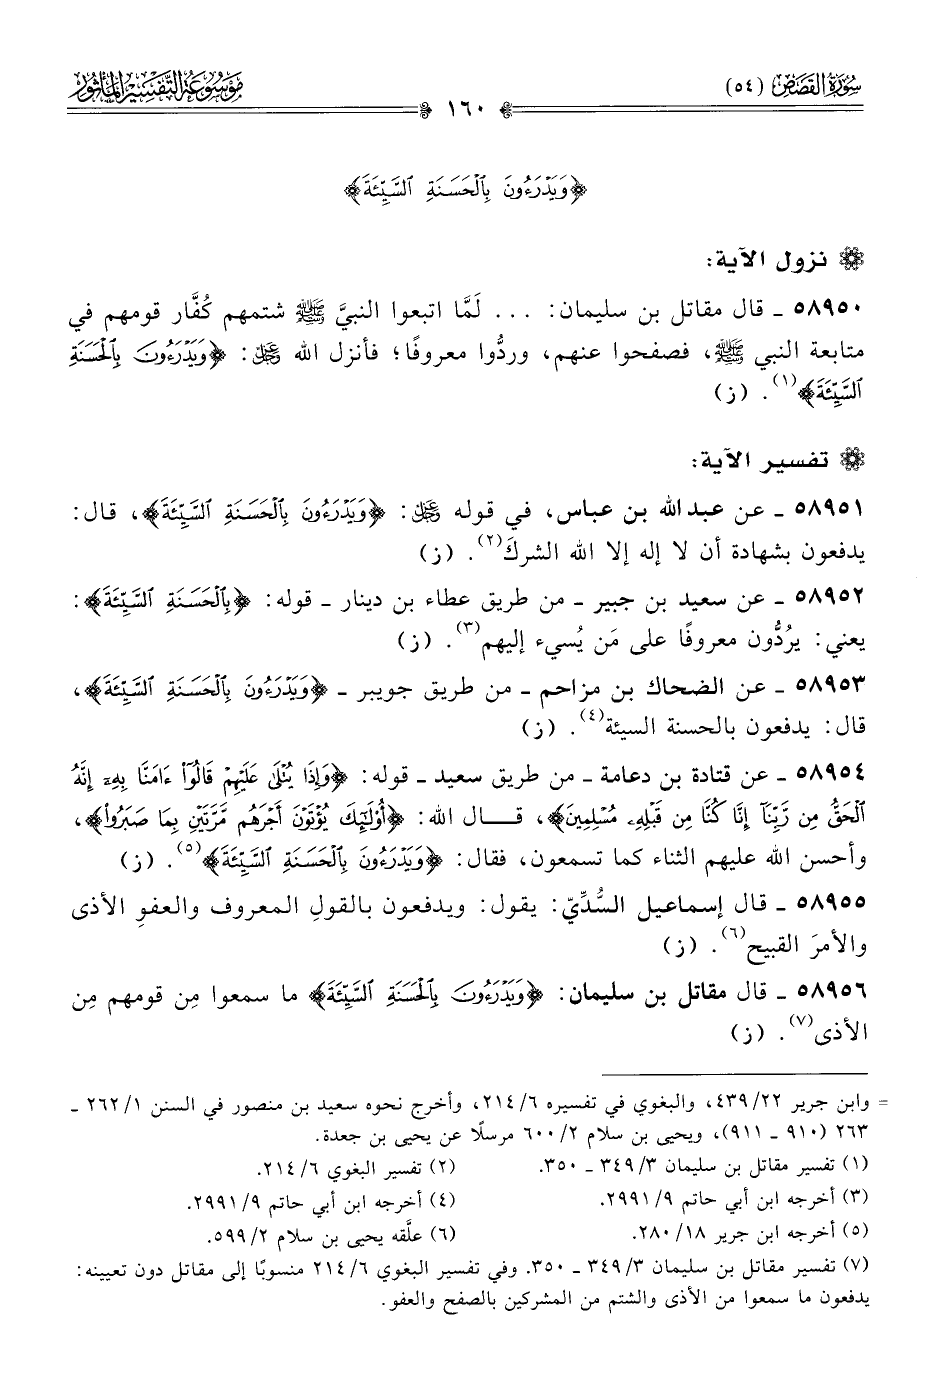 سُورَةُ القَصَصِ (٥٤)
مَوْسُوعَةُ التَّفْسِيرِ المَأْثُورِ
١٦٠
﴿وَيَدْرَءُونَ بِٱلْحَسَنَةِ ٱلسَّيِّئَةَ﴾
نزول الآية:
٥٨٩٥٠ ـ قال مقاتل بن سليمان: ... لَمَّا اتبعوا النبيَّ ﷺ شتمهم كُفَّار قومهم في
متابعة النبي ﷺ، فصفحوا عنهم، وردُّوا معروفًا؛ فأنزل الله ﷿: ﴿وَيَدْرَءُونَ بِٱلْحَسَنَةِ
ٱلسَّيِّئَةَ﴾(١). (ز)
تفسير الآية:
٥٨٩٥١ ـ عن عبد الله بن عباس، في قوله ﷿: ﴿وَيَدْرَءُونَ بِٱلْحَسَنَةِ ٱلسَّيِّئَةَ﴾، قال:
يدفعون بشهادة أن لا إله إلا الله الشركَ(٢). (ز)
٥٨٩٥٢ ـ عن سعيد بن جبير ـ من طريق عطاء بن دينار ـ قوله: ﴿بِٱلْحَسَنَةِ ٱلسَّيِّئَةَ﴾:
يعني: يرُدُّون معروفًا على مَن يُسيء إليهم(٣). (ز)
٥٨٩٥٣ ـ عن الضحاك بن مزاحم ـ من طريق جويبر ـ ﴿وَيَدْرَءُونَ بِٱلْحَسَنَةِ ٱلسَّيِّئَةَ﴾،
قال: يدفعون بالحسنة السيئة(٤). (ز)
٥٨٩٥٤ ـ عن قتادة بن دعامة ـ من طريق سعيد ـ قوله: ﴿وَإِذَا يُتْلَىٰ عَلَيْهِمْ قَالُوٓا۟ ءَامَنَّا بِهِۦٓ إِنَّهُ
ٱلْحَقُّ مِن رَّبِّنَآ إِنَّا كُنَّا مِن قَبْلِهِۦ مُسْلِمِينَ﴾، قـــال الله: ﴿أُو۟لَٰٓئِكَ يُؤْتَوْنَ أَجْرَهُم مَّرَّتَيْنِ بِمَا صَبَرُوا۟﴾،
وأحسن الله عليهم الثناء كما تسمعون، فقال: ﴿وَيَدْرَءُونَ بِٱلْحَسَنَةِ ٱلسَّيِّئَةَ﴾(٥). (ز)
٥٨٩٥٥ ـ قال إسماعيل السُّدِّيّ: يقول: ويدفعون بالقولِ المعروف والعفوِ الأذى
والأمرَ القبيح(٦). (ز)
٥٨٩٥٦ ـ قال مقاتل بن سليمان: ﴿وَيَدْرَءُونَ بِٱلْحَسَنَةِ ٱلسَّيِّئَةَ﴾ ما سمعوا مِن قومهم مِن
الأذى(٧). (ز)
= وابن جرير ٢٢/ ٤٣٩، والبغوي في تفسيره ٦/ ٢١٤، وأخرج نحوه سعيد بن منصور في السنن ١/ ٢٦٢ ـ
٢٦٣ (٩١٠ ـ ٩١١)، ويحيى بن سلام ٢/ ٦٠٠ مرسلًا عن يحيى بن جعدة.
(١) تفسير مقاتل بن سليمان ٣/ ٣٤٩ ـ ٣٥٠. (٢) تفسير البغوي ٦/ ٢١٤.
(٣) أخرجه ابن أبي حاتم ٩/ ٢٩٩١. (٤) أخرجه ابن أبي حاتم ٩/ ٢٩٩١.
(٥) أخرجه ابن جرير ١٨/ ٢٨٠. (٦) علَّقه يحيى بن سلام ٢/ ٥٩٩.
(٧) تفسير مقاتل بن سليمان ٣/ ٣٤٩ ـ ٣٥٠. وفي تفسير البغوي ٦/ ٢١٤ منسوبًا إلى مقاتل دون تعيينه:
يدفعون ما سمعوا من الأذى والشتم من المشركين بالصفح والعفو.